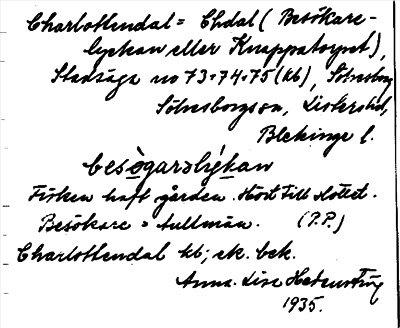 Charlottendal = Chdal (Besökare-
lyckan eller Knappatorpet),
Stadsäga no 73-74-75 (kb), Sölvesborg
Sölvesborgs sn, Listers hd,
Blekinge l.
besø̀garəlýkan
Fisken haft gården. Hört till slottet.
Besökare = tullmän. (P.P.)
Charlottendal kb; ek. bek.
Anna-Lisa
1935.